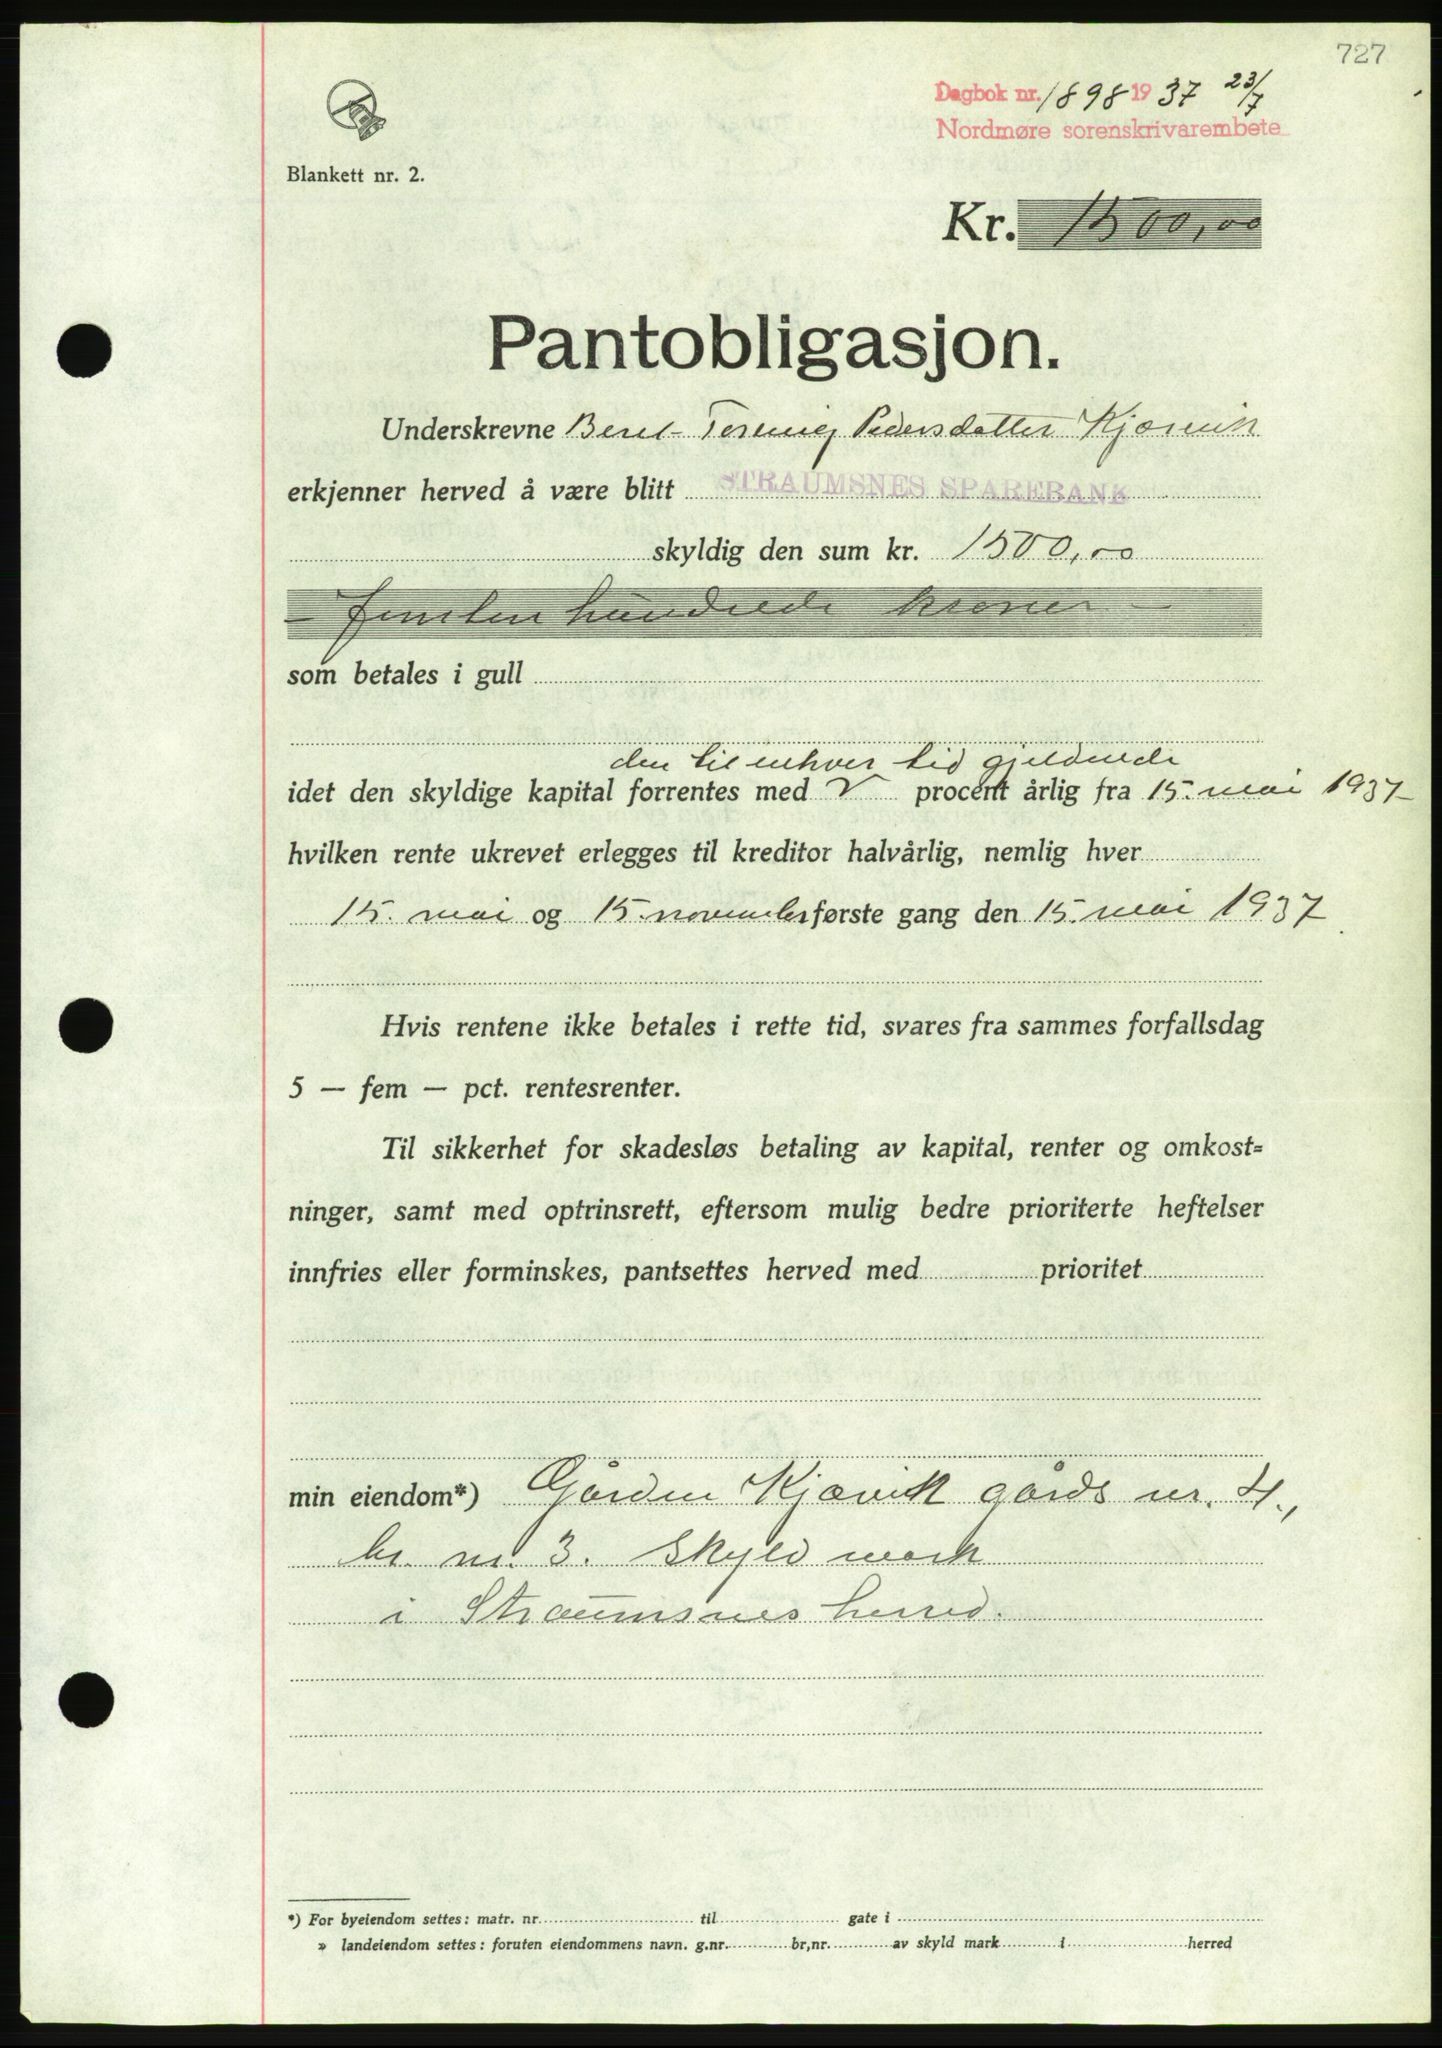 727
Dagbok nr. 1898 1937 23/7
Nordmøre sorenskrivarembete
Blankett nr. 2.
Kr. 1500,00
Pantobligasjon.
Underskrevne Beret Pedersdatter Kjørvik
erkjenner herved å være blitt STRAUMSNES SPAREBANK
skyldig den sum kr. 1500,00
- femten hundrede kroner -
som betales i gull
den til enhver tid gjeldende
idet den skyldige kapital forrentes med procent årlig fra 15. mai 1937
hvilken rente ukrevet erlegges til kreditor halvårlig, nemlig hver
15. mai og 15. november første gang den 15. mai 1937
Hvis rentene ikke betales i rette tid, svares fra sammes forfallsdag
5 — fem — pct. rentesrenter.
Til sikkerhet for skadesløs betaling av kapital, renter og omkost=
ninger, samt med optrinsrett, eftersom mulig bedre prioriterte heftelser
innfries eller forminskes, pantsettes herved med prioritet
min eiendom*) Gården Kjøvik gårds nr. 4.,
br. nr. 3. Skyld mark
i Straumsnes herred.
*) For byeiendom settes: matr. nr. til gate i
» landeiendom settes: foruten eiendommens navn. g.nr. br,nr. av skyld mark i herred